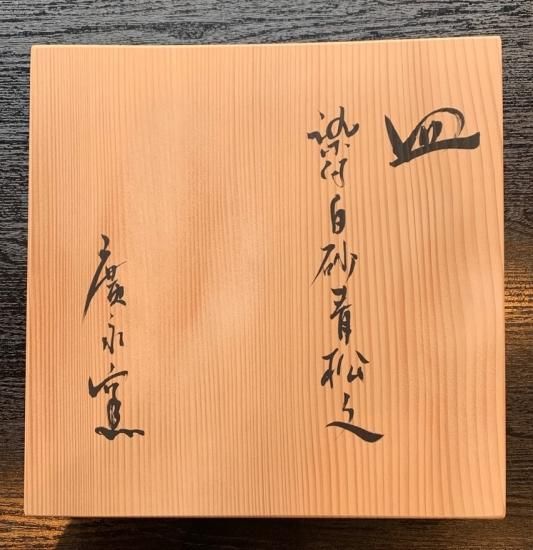 皿
染付白砂青松文
廣永窯